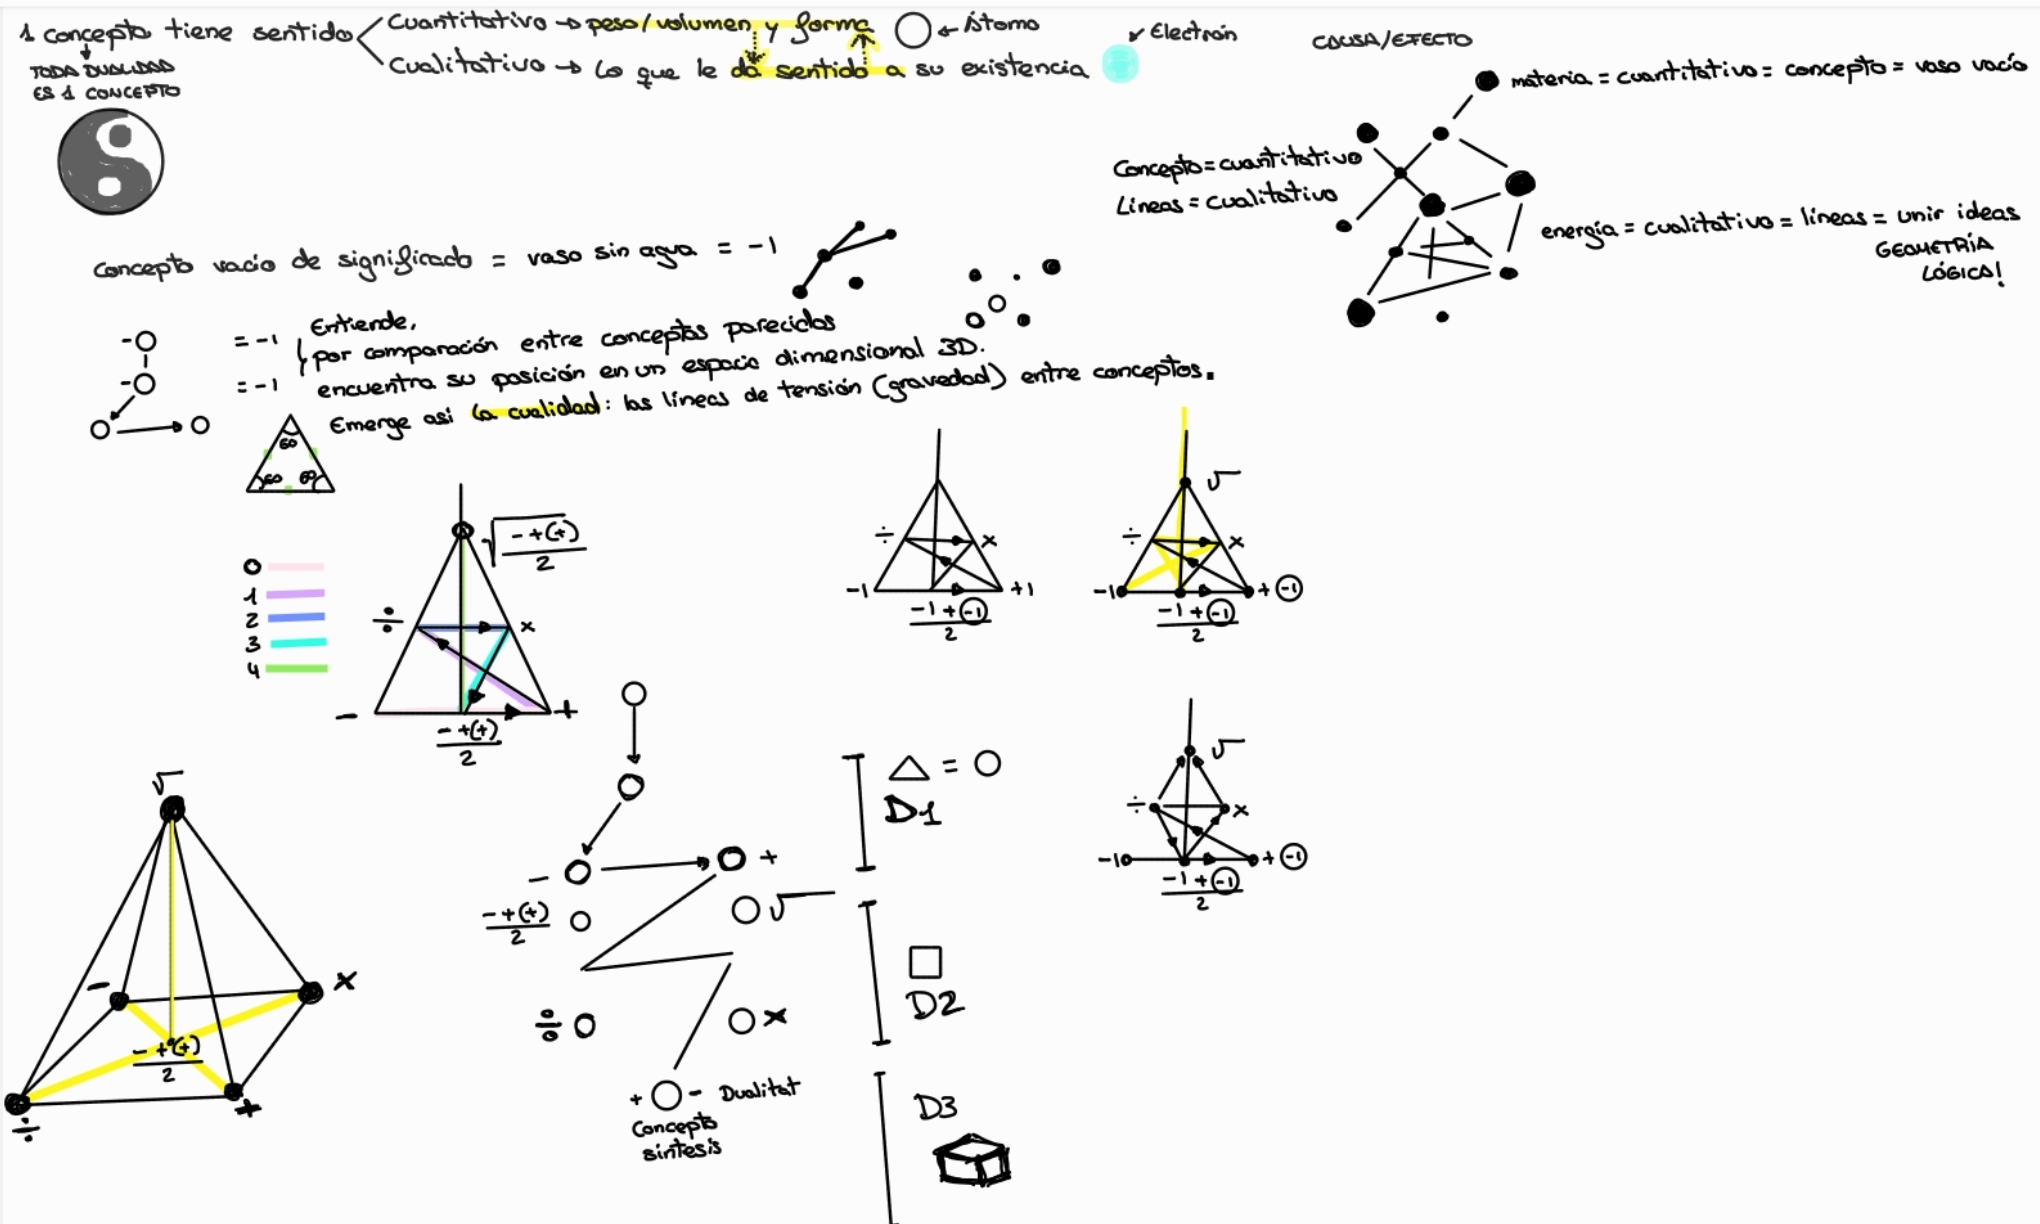 1 concepto tiene sentido
Cuantitativo → peso/volumen y forma ← Átomo
Cualitativo → Lo que le da sentido a su existencia
↙ Electrón
TODA DUALIDAD
ES 1 CONCEPTO
CAUSA/EFECTO
materia = cuantitativo = concepto = vaso vacío
Concepto = cuantitativo
Líneas = cualitativo
energía = cualitativo = líneas = unir ideas
GEOMETRÍA
LÓGICA!
Concepto vacío de significado = vaso sin agua = -1
- = -1
- = -1
Entiende,
por comparación entre conceptos parecidos
encuentra su posición en un espacio dimensional 3D.
Emerge así la cualidad: las líneas de tensión (gravedad) entre conceptos.
60
60 60
√ -+(+)
2
0
1
2
3
4
÷ x
- +
-+(+)
2
÷ x
-1 +1
-1 + -1
2
√
÷ x
-1 + -1
-1 + -1
2
√
÷ x
-1 + -1
-1 + -1
2
√
- x
-+(+)
2
÷ +
- +
-+(+)
2
√
÷ x
+ - Dualitat
Concepto
síntesis
△ = ○
D1
□
D2
D3